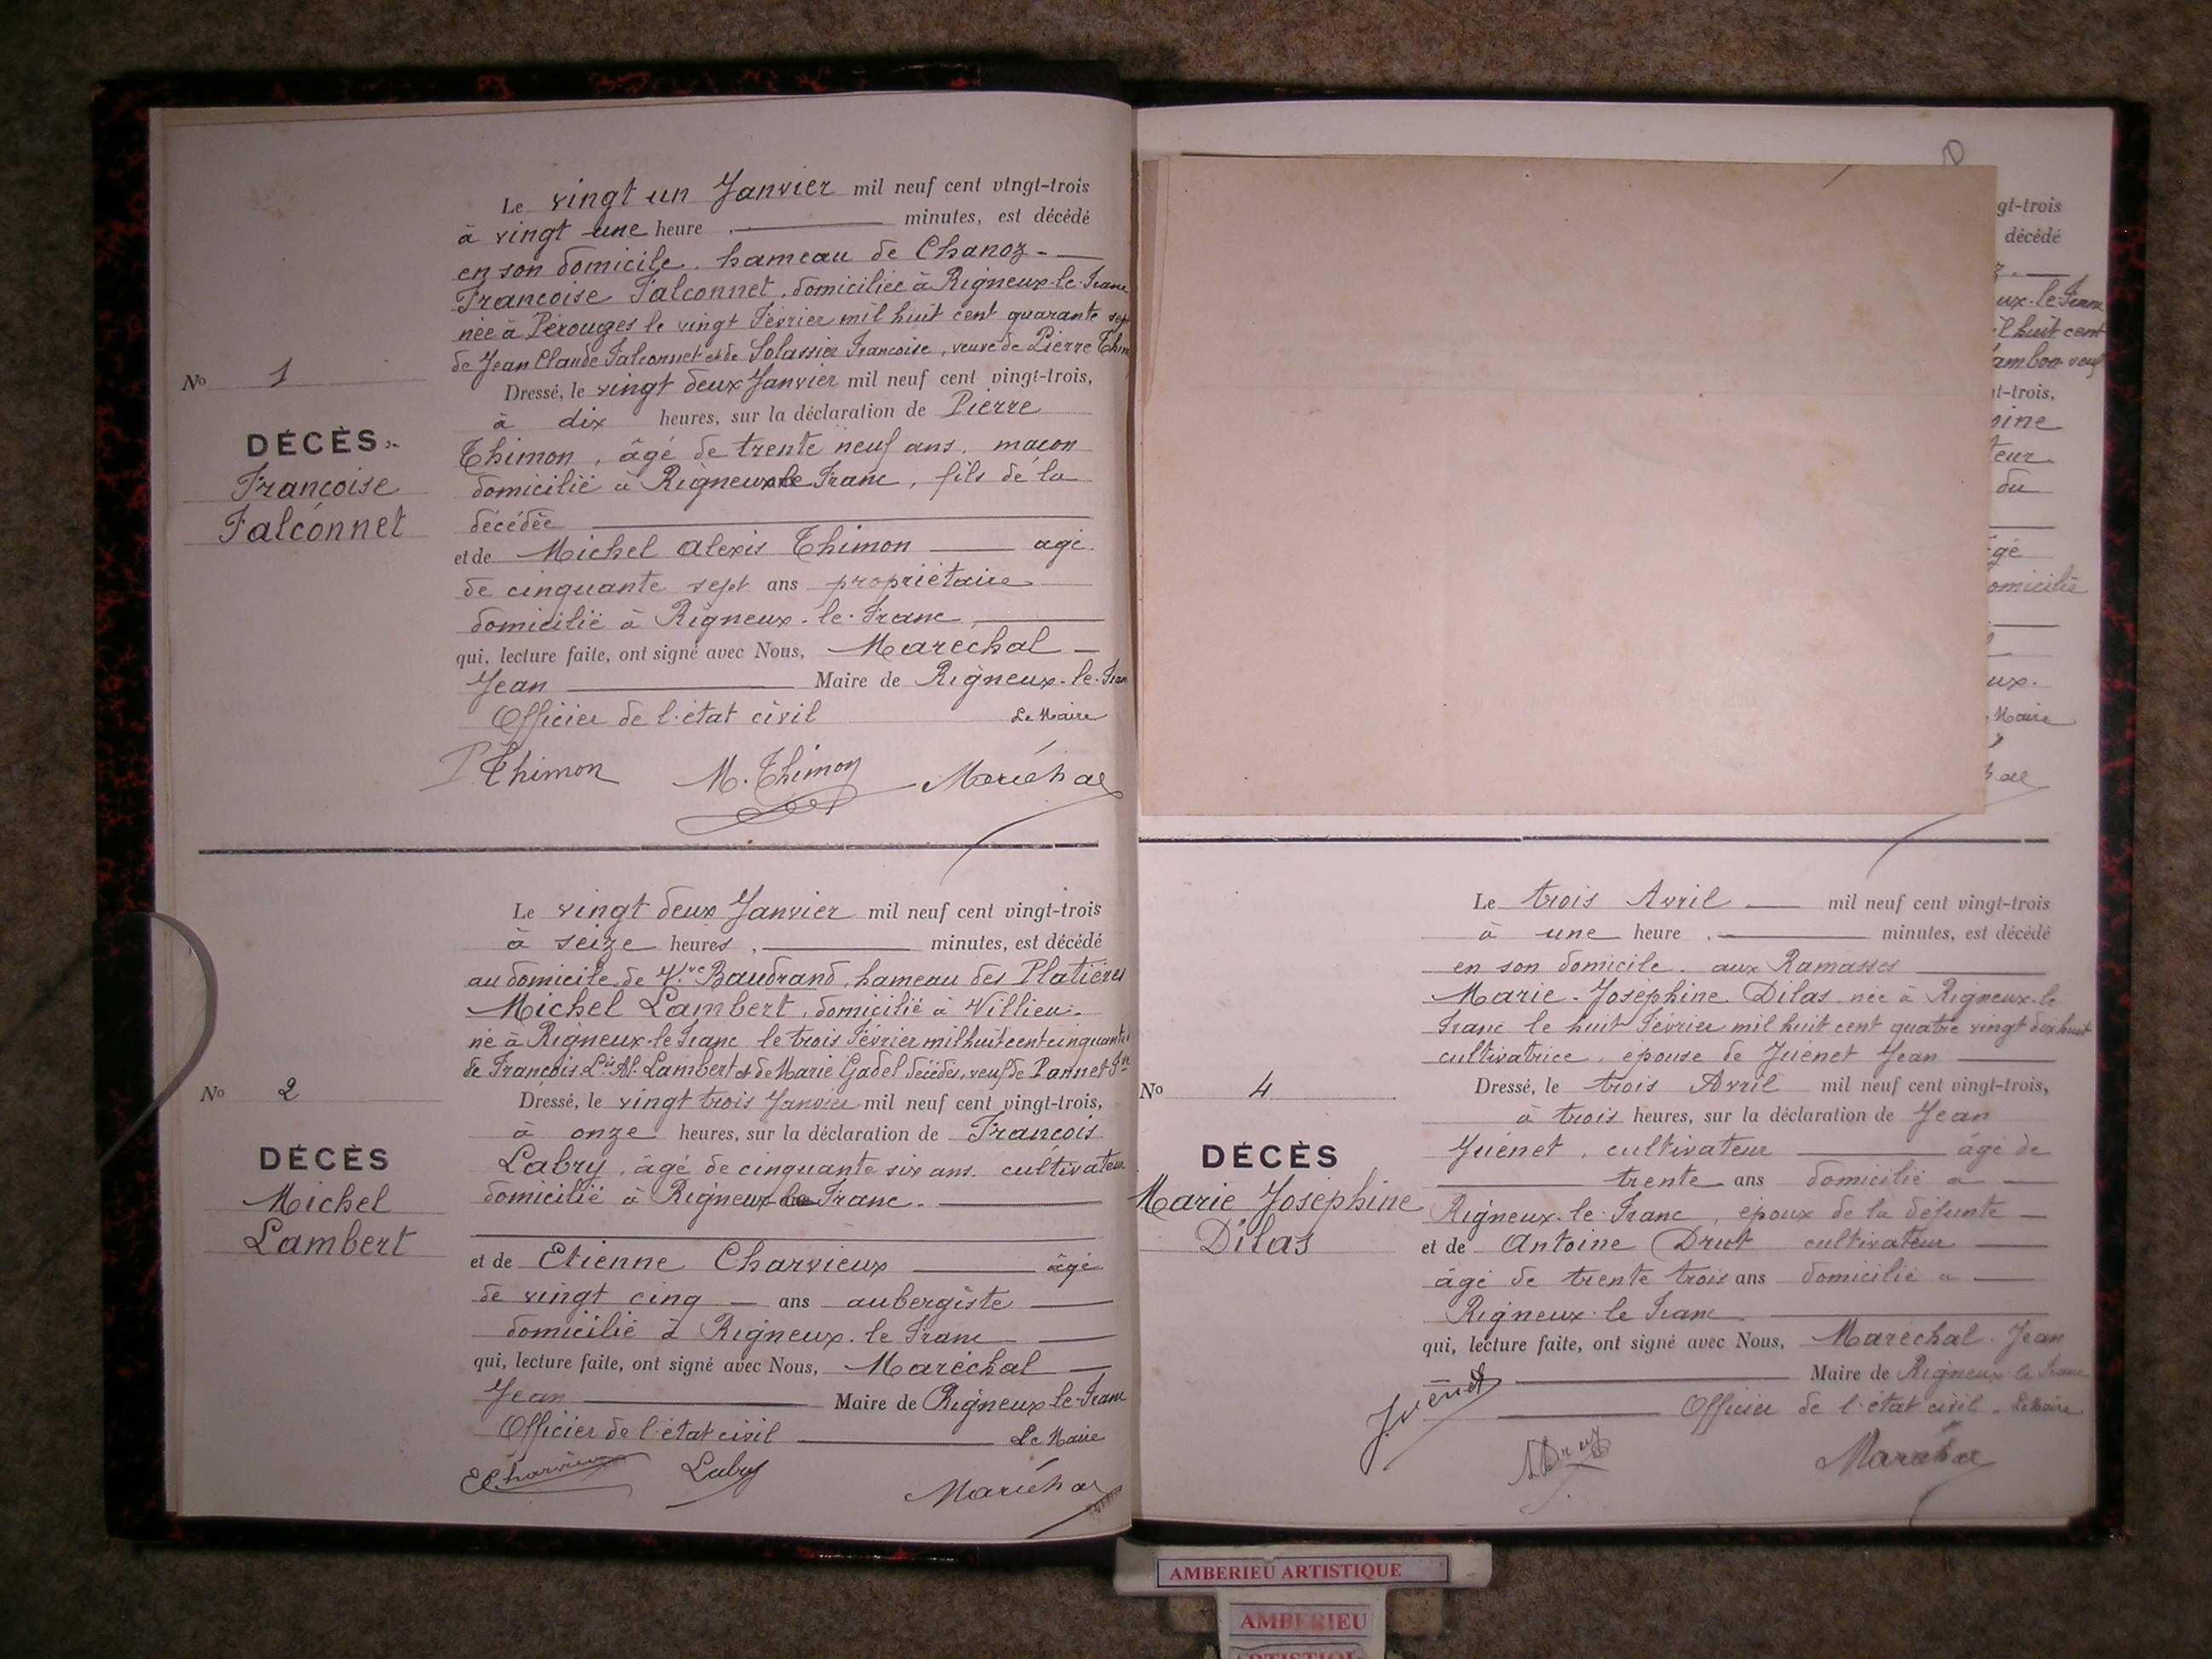 Le vingt un Janvier mil neuf cent vingt-trois
à vingt une heure , minutes, est décédé
en son domicile. hameau de Chanoz -
Francoise Falconnet, domiciliée à Rigneux-le-Franc
née à Pérouges le vingt Février mil huit cent quarante sept
de Jean Claude Falconnet et de Solassier Francoise, veuve de Pierre Thim
Dressé, le vingt deux Janvier mil neuf cent vingt-trois,
à dix heures, sur la déclaration de Pierre
Thimon, âgé de trente neuf ans, macon
domicilié à Rigneux le Franc, fils de la
décédée
et de Michel Alexis Thimon âgé
de cinquante sept ans propriétaire
domicilié à Rigneux-le-Franc,
qui, lecture faite, ont signé avec Nous, Marechal
Jean Maire de Rigneux-le-Fran
Officier de l'état civil Le Maire
P Thimon M. Thimon Maréchal
No 1
DÉCÈS
Francoise
Falconnet
Le vingt deux Janvier mil neuf cent vingt-trois
à seize heures , minutes, est décédé
au domicile de Vve Baudrand, hameau des Platières
Michel Lambert, domicilié à Villieu.
né à Rigneux-le-Franc le trois Février mil huit cent cinquante
de François Lis Al. Lambert et de Marie Gadel décédés, veuf de Pannet
Dressé, le vingt trois Janvier mil neuf cent vingt-trois,
à onze heures, sur la déclaration de François
Labry, âgé de cinquante six ans. cultivateur
domicilié à Rigneux le Franc.
et de Etienne Charvieux âgé
de vingt cinq ans aubergiste
domicilié à Rigneux-le Franc
qui, lecture faite, ont signé avec Nous, Maréchal
Jean Maire de Rigneux-le-Franc
Officier de l'état civil Le Maire
E Charvieux Labry Maréchal
No 2
DÉCÈS
Michel
Lambert
gt-trois
décédé
ux-le-Franc
il huit cent
ambon veuf
gt-trois,
oine
teur
du
gé
omicilié
ux.
Maire
hal
Le trois Avril mil neuf cent vingt-trois
à une heure , minutes, est décédé
en son domicile. aux Ramasses
Marie-Joséphine Dilas née à Rigneux-le
Franc le huit Février mil huit cent quatre vingt dix huit
cultivatrice, épouse de Juénet Jean
Dressé, le trois Avril mil neuf cent vingt-trois,
à trois heures, sur la déclaration de Jean
Juénet, cultivateur âgé de
trente ans domicilié à
Rigneux-le-Franc, époux de la défunte
et de Antoine Drut cultivateur
âgé de trente trois ans domicilié à
Rigneux-le Franc
qui, lecture faite, ont signé avec Nous, Maréchal. Jean
Maire de Rigneux-le Franc
Officier de l'état civil - Le Maire
Juénet
Maréchal
No 4
DÉCÈS
Marie Joséphine
Dilas
AMBERIEU ARTISTIQUE
AMBERIEU
ARTISTIQUE